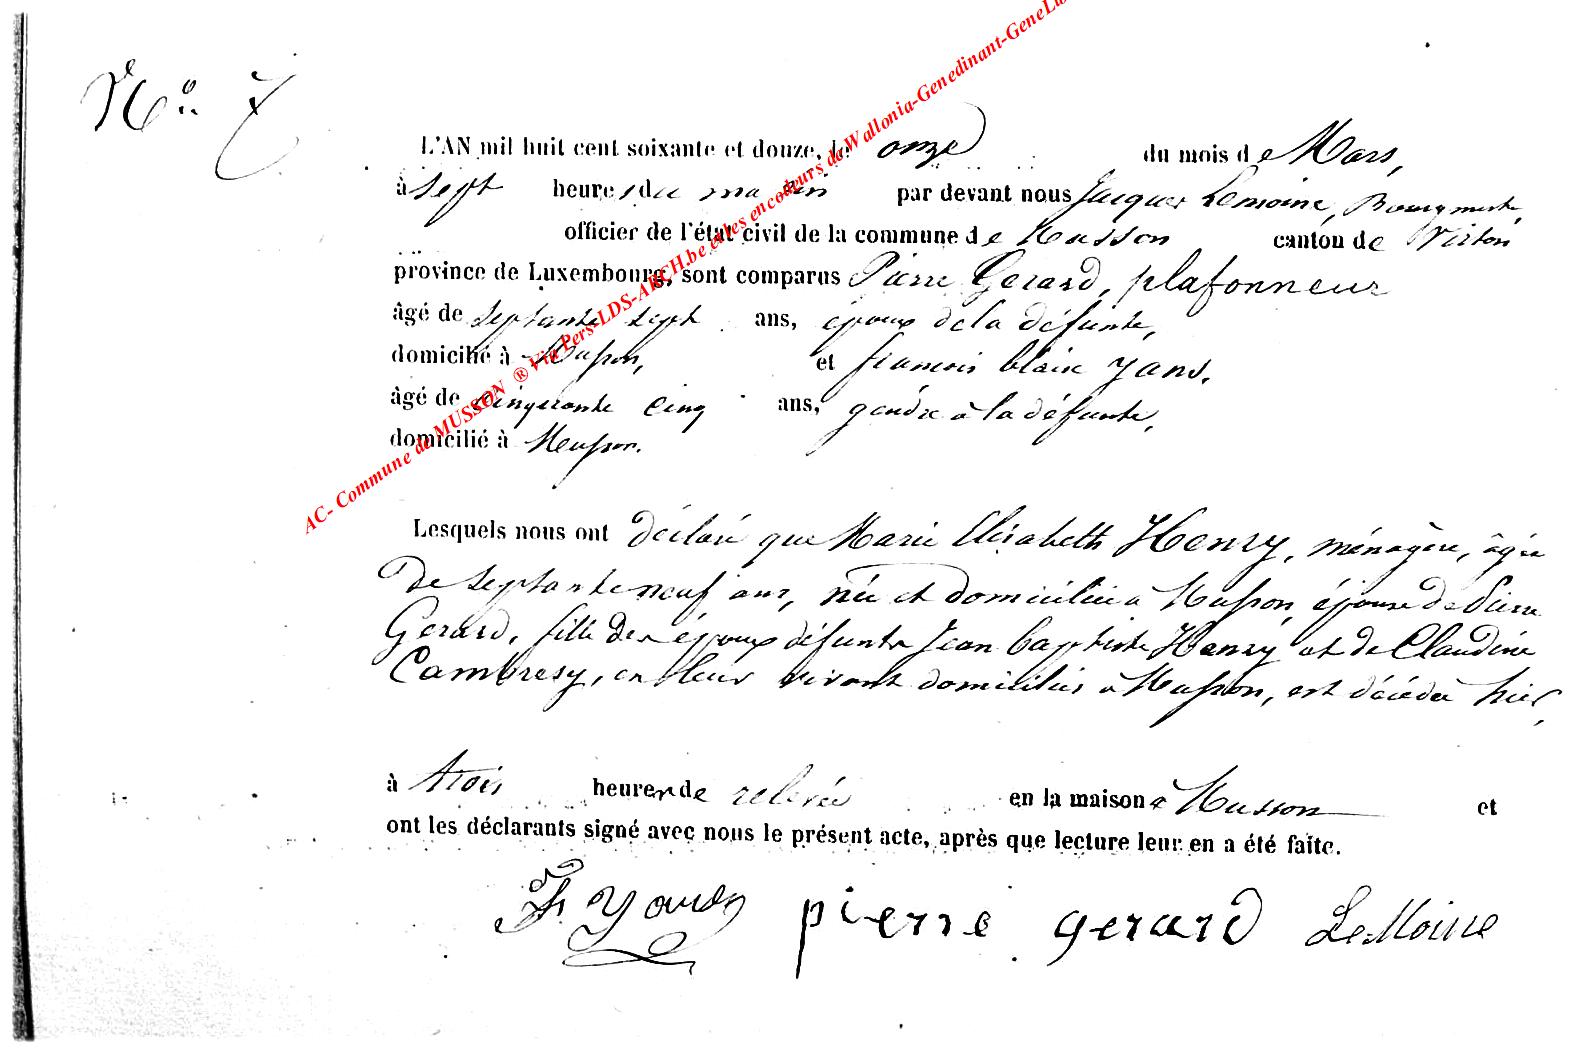 N.o 7
L'AN mil huit cent soixante et douze, le onze du mois de Mars,
à sept heures du matin par devant nous Jacques Lemoine, Bourgmestre,
officier de l'état civil de la commune de Musson canton de Virton
province de Luxembourg, sont comparus Pierre Gerard, plafonneur
âgé de septante sept ans, époux de la défunte,
domicilié à Musson, et francois blaise yans,
âgé de cinquante cinq ans, gendre à la défunte,
domicilié à Musson.
Lesquels nous ont déclaré que Marie Elisabeth Henry, ménagère, âgée
de septante neuf ans, née et domiciliée à Musson, épouse de Pierre
Gerard, fille des époux défunts Jean baptiste Henry et de Claudine
Cambresy, en leur vivant domiciliés à Musson, est décédée hier,
à trois heures de relevée en la maison à Musson et
ont les déclarants signé avec nous le présent acte, après que lecture leur en a été faite.
pierre gerard LeMoine
AC- Commune de MUSSON ® Via Pers-LDS-ARCH.be et les encodeurs de Wallonia-Genedinant-GeneLux